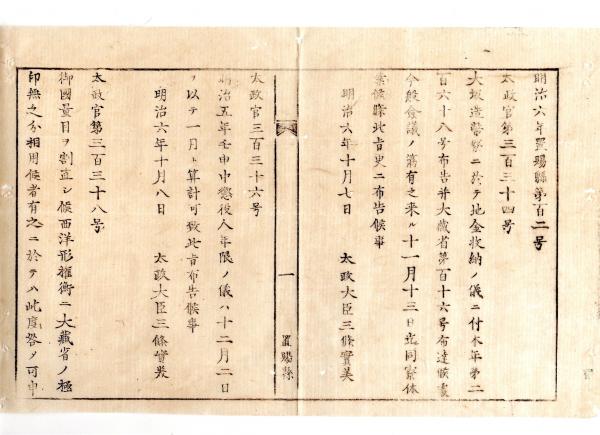 明治六年置賜縣第百二号
太政官第三百三十四号
大坂造幣寮ニ於テ地金收納ノ儀ニ付本年第二
百六十八号布告并大藏省第百十六号布達候處
今般僉議ノ筋有之来ル十一月十三日迄同寮休
業候條此旨更ニ布告候事
明治六年十月七日
太政大臣三條實美
一
置賜縣
太政官三百三十六号
明治五年壬申中懲役人年限ノ儀ハ十二月二日
ヲ以テ一月ト算計可致此旨布告候事
明治六年十月八日
太政大臣三條實美
太政官第三百三十八号
御國量目ヲ割直シ候西洋形權衡ニ大藏省ノ極
印無之分相用候者有之ニ於テハ此度咎メ可申